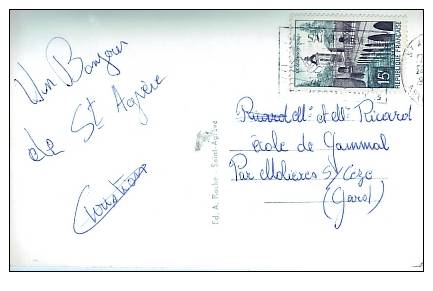 Un Bonjour
de St Agrève
Christian
Ed. A. Roche - Saint-Agrève
15F
REPUBLIQUE FRANÇAISE
Ricard Mr et Me Ricard
école de Gammal
Par Molières S/ Cèze
(Gard)